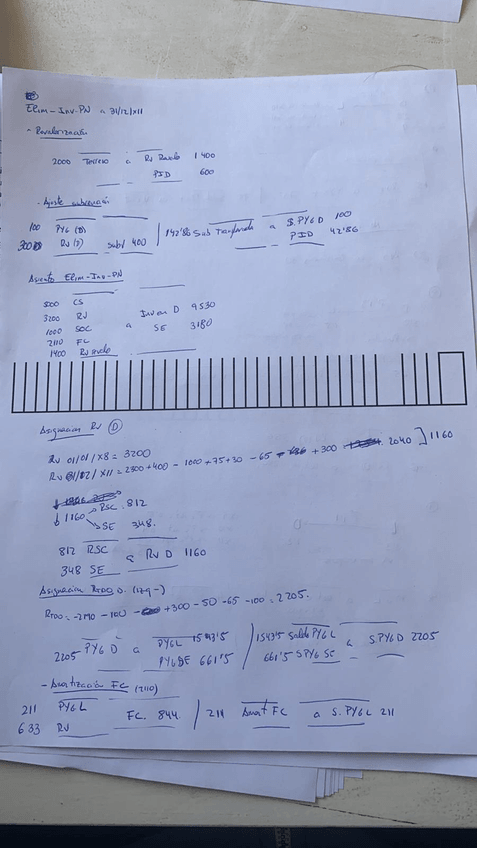 Elim-Inv-PN a 31/12/X11
- Revalorización
2000 Terreno a Rv Revalo 1400
PID 600
- Ajuste subvención
100 PYG (D)
300 Rv (D) subv 400 / 142'86 Sub Transferida a S.PYG D 100
PID 42'86
Asiento Elim-Inv-PN
500 CS
3200 RV Inv en D 9530
1000 SOC a SE 3180
2110 FC
1400 Rv revalo
Asignación Rv D
Rv 01/01/X8 = 3200
Rv 01/12/X11 = 2300+400 - 1000 +75+30 -65 +300 2040 ] 1160
↓ 1160 RSC 812
SE 348.
812 RSC a Rv D 1160
348 SE
Asignación RTDO D.
RTDO = -2190 -100 +300 -50 -65 -100 = 2205.
2205 PYG D a PYGL 1543'5 / 1543'5 Saldo PYGL a S.PYG D 2205
PYGSE 661'5 661'5 S PYG SE
- Amortización FC (2110)
211 PYGL FC. 844 / 211 Amort FC a S. PYGL 211
633 RV